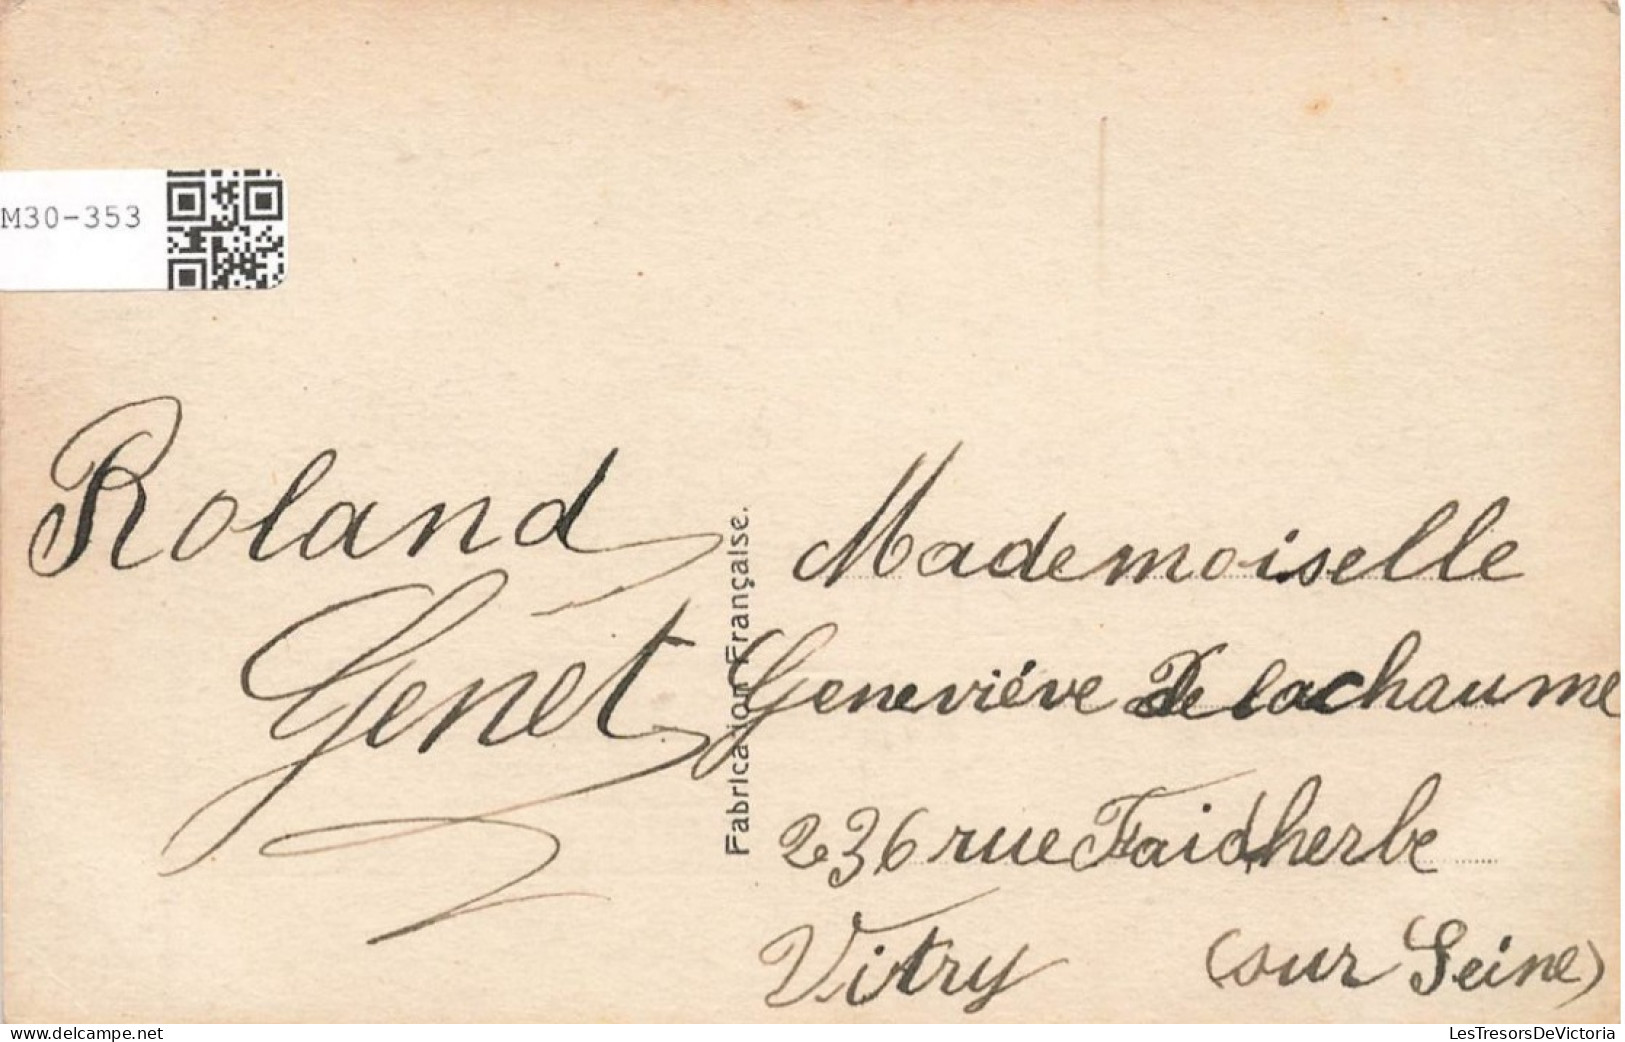 M30-353
Roland
Genêt
Fabrication Française.
Mademoiselle
Geneviéve Delachaume
236 rue Faidherbe
Vitry (sur Seine)
www.delcampe.net
LesTresorsDeVictoria